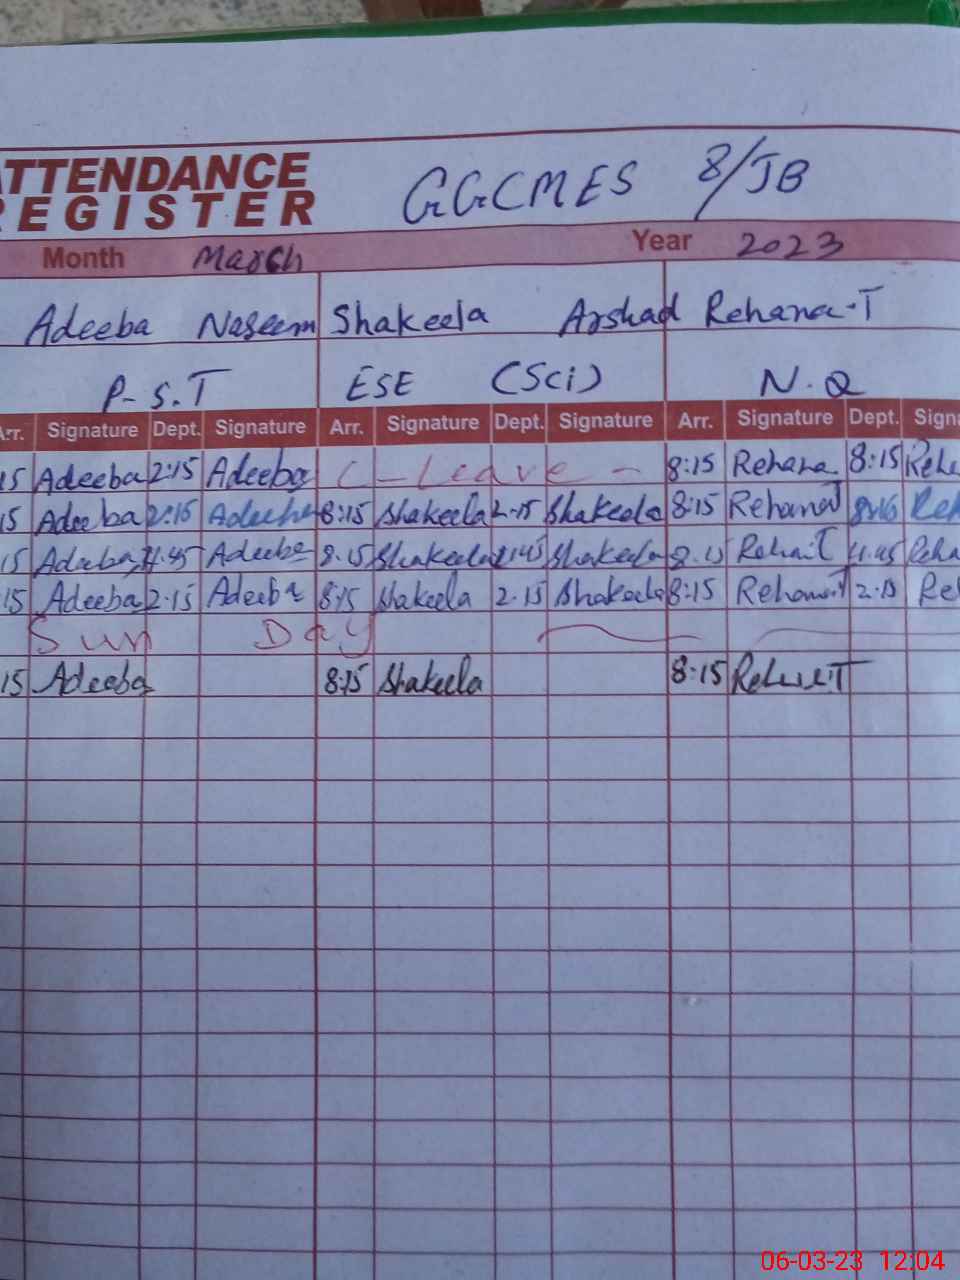 ATTENDANCE
REGISTER GGCMES 8/JB
Month March Year 2023
Adeeba Naseem Shakeela Arshad Rehana-T
P-S.T ESE (Sci) N.Q
Arr. Signature Dept. Signature Arr. Signature Dept. Signature Arr. Signature Dept. Signa
15 Adeeba 2:15 Adeeba C-Leave - 8:15 Rehana 8:15 Rehe
15 Adeeba 2:15 8:15 Shakeela 2-15 Shakeela 8:15
15 Adeeba 11.45 Adeeba 8.15 Shakeela 11:45 Shakeela 8.15 11.45 Reha
15 Adeeba 2.15 Adeeba 8:15 Shakeela 2.15 Shakeela 8:15 2.15 Re
Sun Day
15 Adeeba 8:15 Shakeela 8:15
06-03-23 12:04